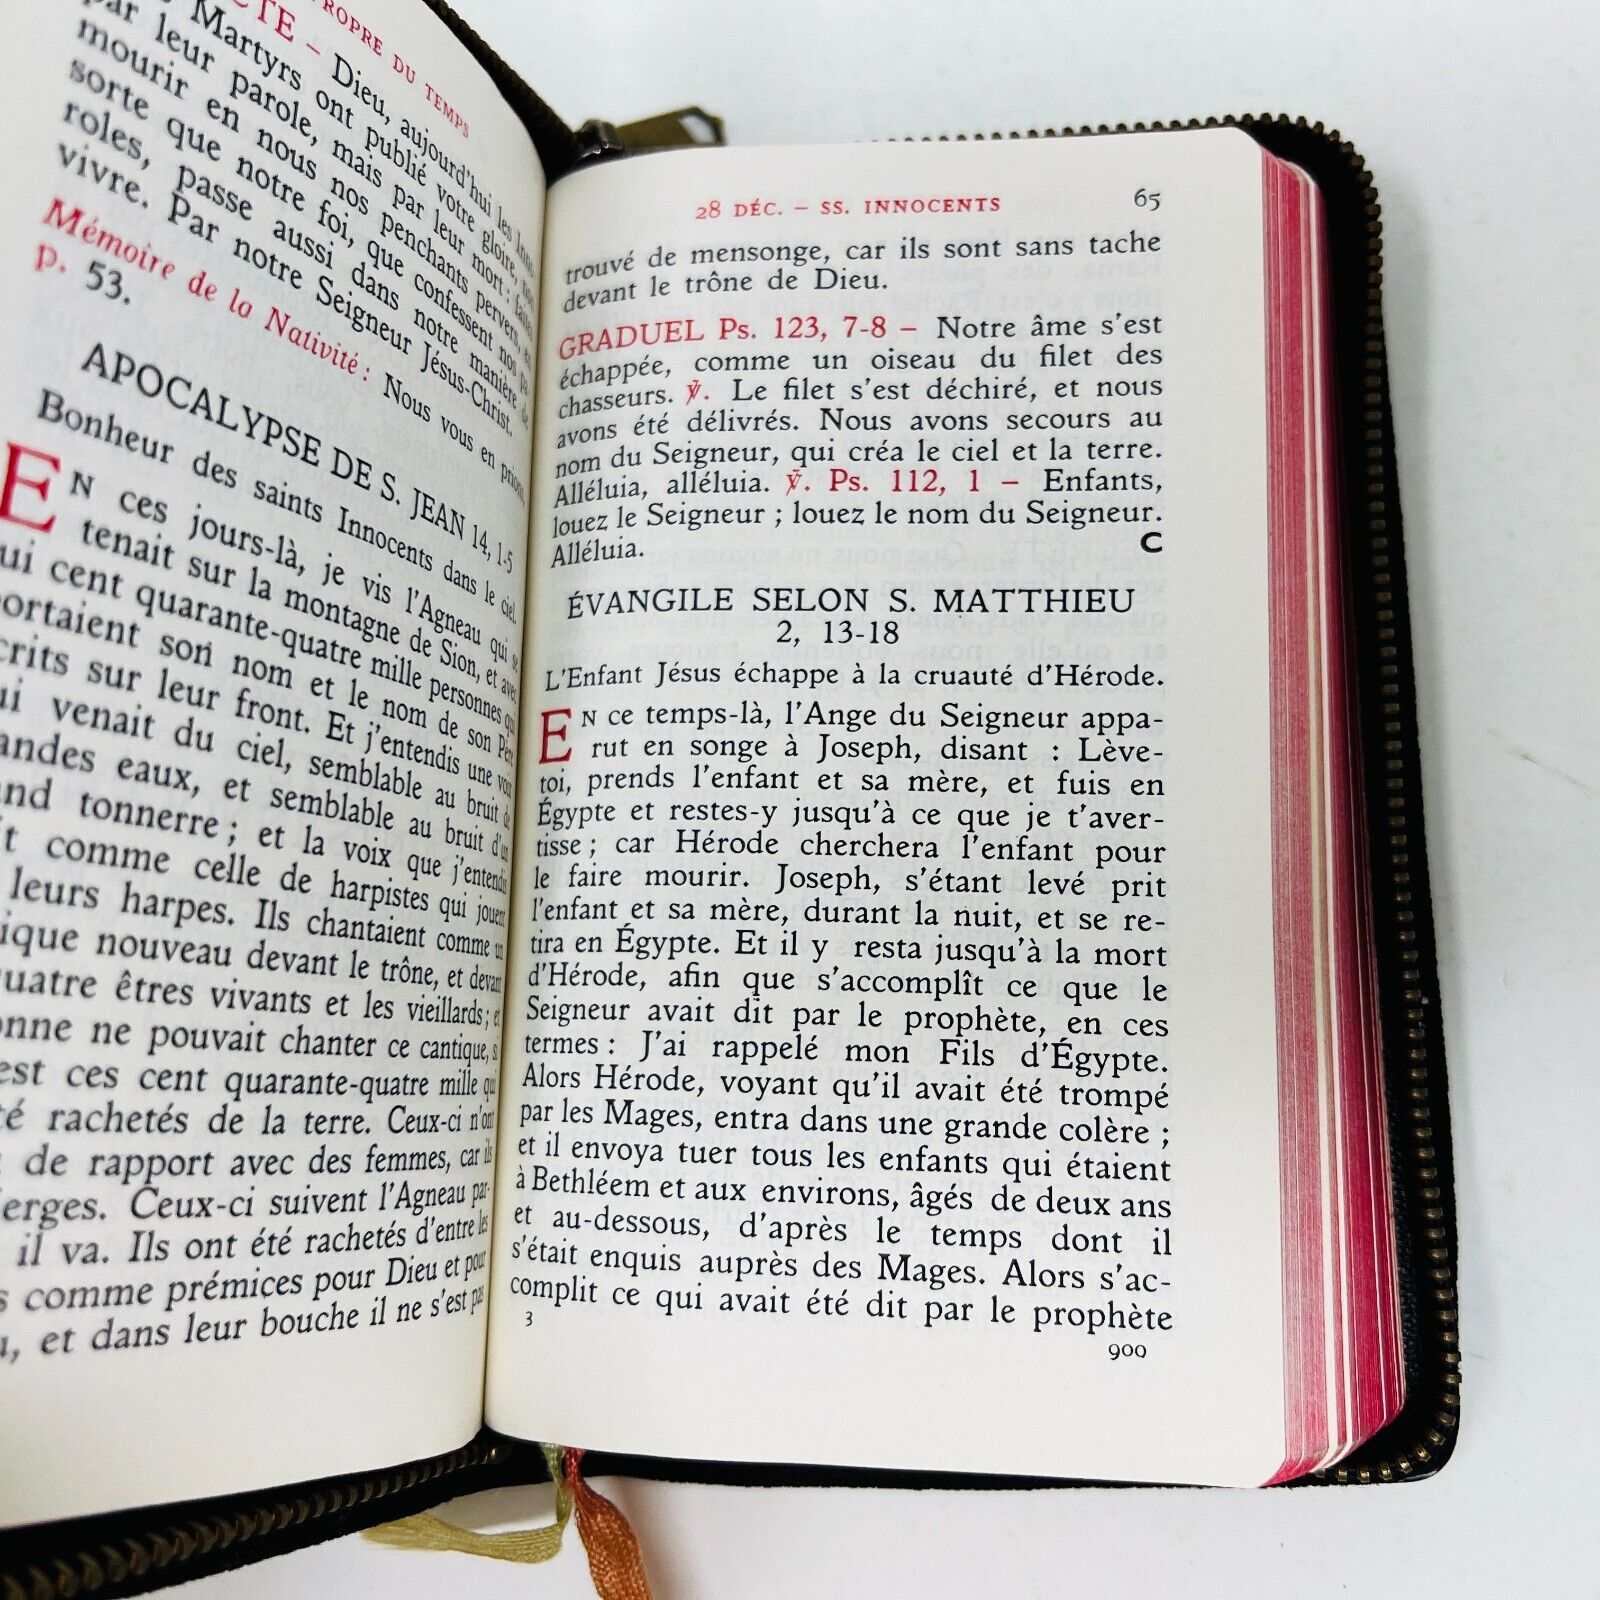 PROPRE DU TEMPS
CTE – Dieu, aujourd'hui les Inno-
Martyrs ont publié votre gloire, non
par leur parole, mais par leur mort : faites
mourir en nous nos penchants pervers, en
sorte que notre foi, que confessent nos pa-
roles, passe aussi dans notre manière de
vivre. Par notre Seigneur Jésus-Christ.
Mémoire de la Nativité : Nous vous en prions,
p. 53.
APOCALYPSE DE S. JEAN 14, 1-5
Bonheur des saints Innocents dans le ciel.
EN ces jours-là, je vis l'Agneau qui se
tenait sur la montagne de Sion, et avec
ui cent quarante-quatre mille personnes qui
portaient son nom et le nom de son Père
crits sur leur front. Et j'entendis une voix
ui venait du ciel, semblable au bruit de
andes eaux, et semblable au bruit d'un
nd tonnerre ; et la voix que j'entendis
it comme celle de harpistes qui jouent
leurs harpes. Ils chantaient comme un
ique nouveau devant le trône, et devant
uatre êtres vivants et les vieillards ; et
onne ne pouvait chanter ce cantique, si
est ces cent quarante-quatre mille qui
té rachetés de la terre. Ceux-ci n'ont
de rapport avec des femmes, car ils
ierges. Ceux-ci suivent l'Agneau par-
il va. Ils ont été rachetés d'entre les
s comme prémices pour Dieu et pour
u, et dans leur bouche il ne s'est pas
28 DÉC. – SS. INNOCENTS 65
trouvé de mensonge, car ils sont sans tache
devant le trône de Dieu.
GRADUEL Ps. 123, 7-8 – Notre âme s'est
échappée, comme un oiseau du filet des
chasseurs. ℣. Le filet s'est déchiré, et nous
avons été délivrés. Nous avons secours au
nom du Seigneur, qui créa le ciel et la terre.
Alléluia, alléluia. ℣. Ps. 112, 1 – Enfants,
louez le Seigneur ; louez le nom du Seigneur.
Alléluia. C
ÉVANGILE SELON S. MATTHIEU
2, 13-18
L'Enfant Jésus échappe à la cruauté d'Hérode.
EN ce temps-là, l'Ange du Seigneur appa-
rut en songe à Joseph, disant : Lève-
toi, prends l'enfant et sa mère, et fuis en
Égypte et restes-y jusqu'à ce que je t'aver-
tisse ; car Hérode cherchera l'enfant pour
le faire mourir. Joseph, s'étant levé prit
l'enfant et sa mère, durant la nuit, et se re-
tira en Égypte. Et il y resta jusqu'à la mort
d'Hérode, afin que s'accomplît ce que le
Seigneur avait dit par le prophète, en ces
termes : J'ai rappelé mon Fils d'Égypte.
Alors Hérode, voyant qu'il avait été trompé
par les Mages, entra dans une grande colère ;
et il envoya tuer tous les enfants qui étaient
à Bethléem et aux environs, âgés de deux ans
et au-dessous, d'après le temps dont il
s'était enquis auprès des Mages. Alors s'ac-
complit ce qui avait été dit par le prophète
3
900